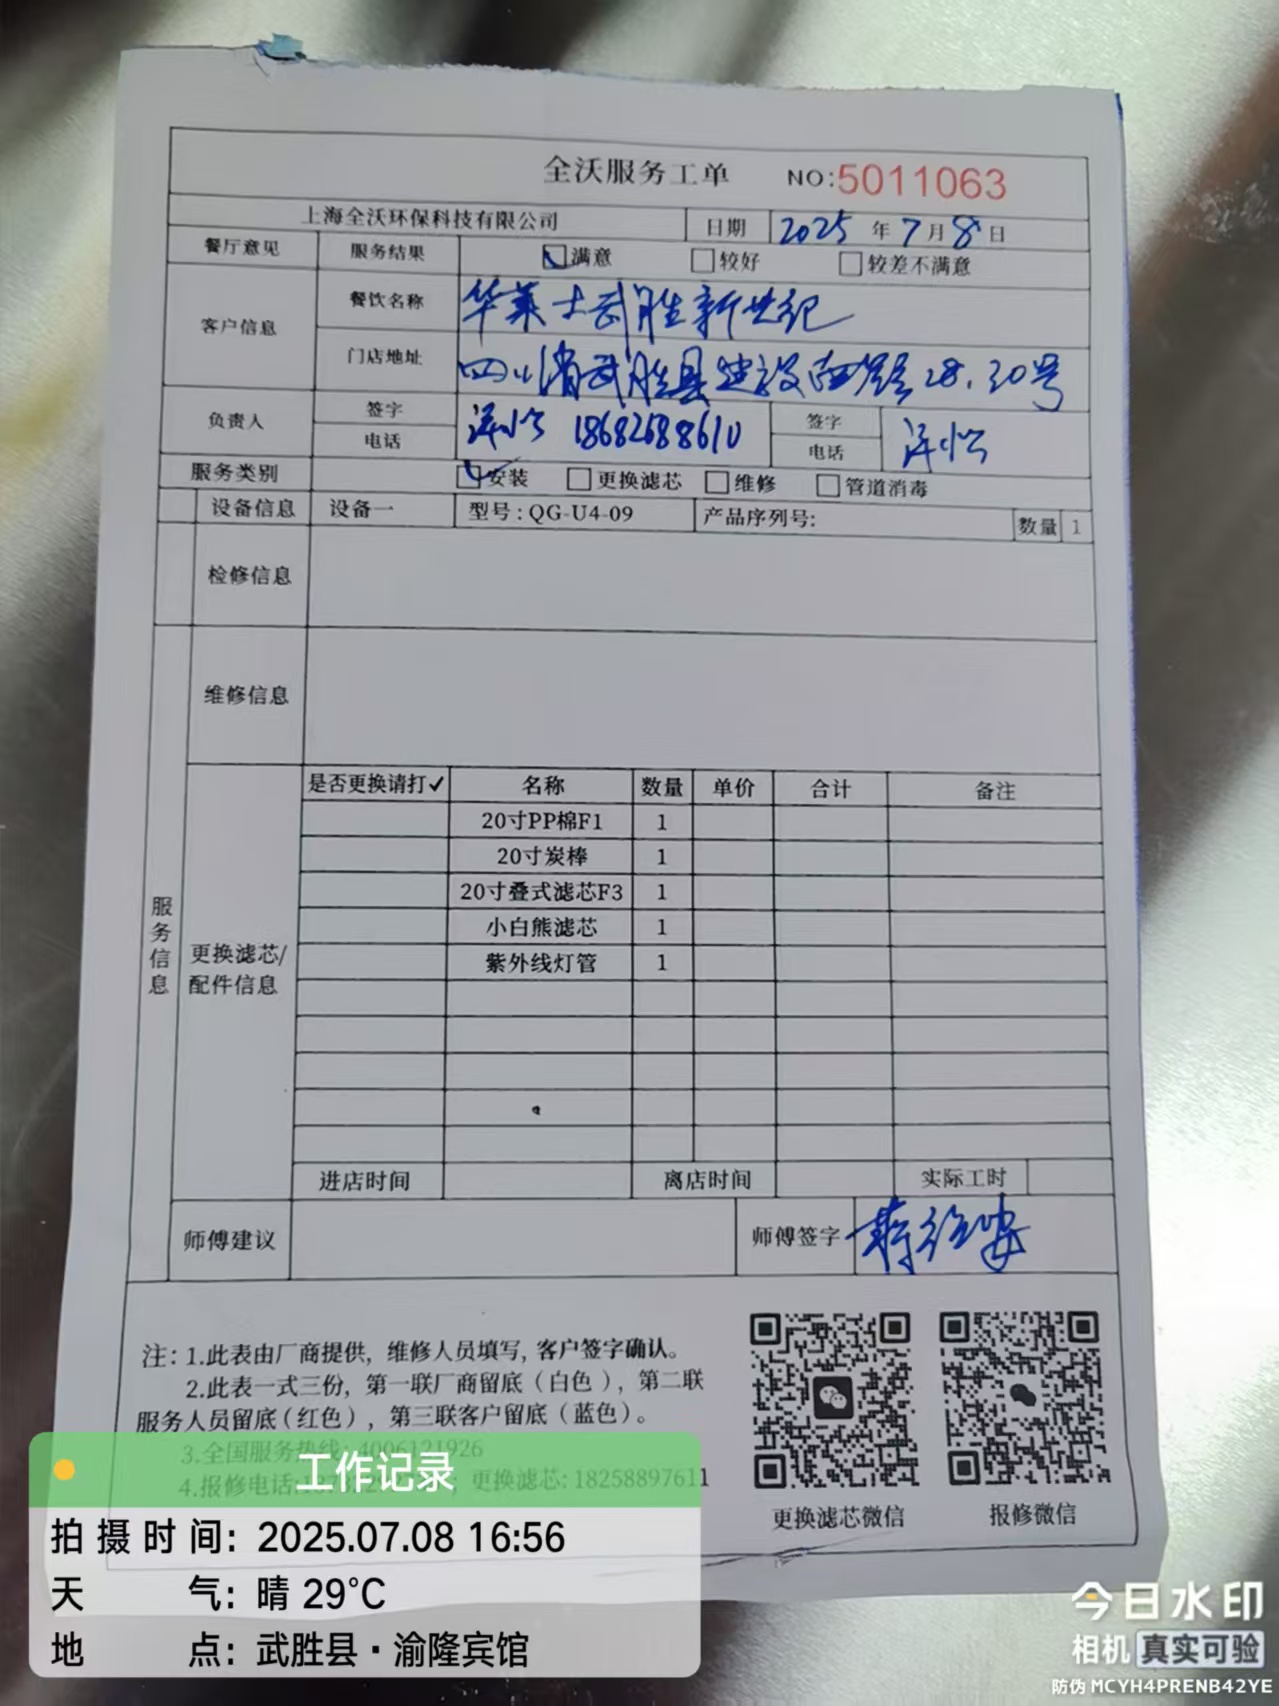 全沃服务工单 NO:5011063
上海全沃环保科技有限公司 日期 2025年7月8日
餐厅意见 服务结果 满意 较好 较差不满意
客户信息 餐饮名称 华莱士武胜新世纪
门店地址 四川省武胜县建设西路28.30号
负责人 签字 签字
电话 18682688610 电话
服务类别 安装 更换滤芯 维修 管道消毒
设备信息 设备一 型号:QG-U4-09 产品序列号: 数量 1
检修信息
维修信息
服务信息
更换滤芯/
配件信息
是否更换请打✓ 名称 数量 单价 合计 备注
20寸PP棉F1 1
20寸炭棒 1
20寸叠式滤芯F3 1
小白熊滤芯 1
紫外线灯管 1
进店时间 离店时间 实际工时
师傅建议 师傅签字
注:1.此表由厂商提供,维修人员填写,客户签字确认。
2.此表一式三份,第一联厂商留底(白色),第二联
服务人员留底(红色),第三联客户留底(蓝色)。
3.全国服务热线:4006121926
4.报修电话: ; 更换滤芯:18258897611
更换滤芯微信 报修微信
工作记录
拍摄时间: 2025.07.08 16:56
天气: 晴 29℃
地点: 武胜县·渝隆宾馆
今日水印
相机 真实可验
防伪 MCYH4PRENB42YE